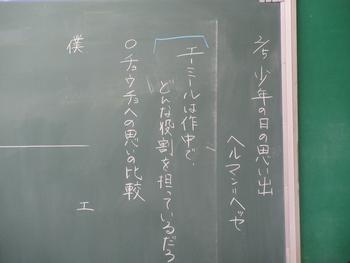 2/5 少年の日の思い出
ヘルマン・ヘッセ
エーミールは作中で、
どんな役割を担っているだろ
○チョウチョへの思いの比較
僕
エ